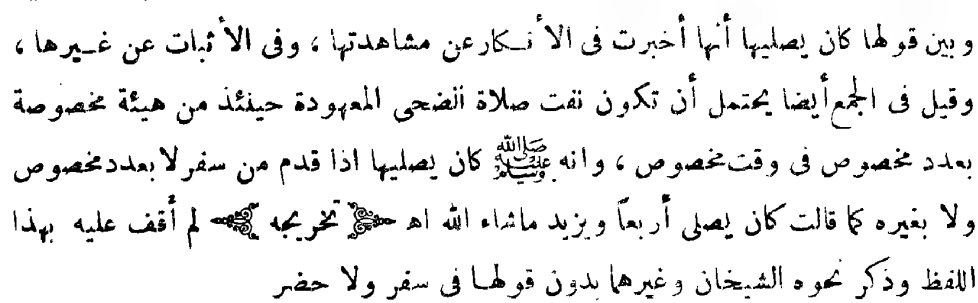 وبين قولها كان يصليها أنها أخبرت فى الأنكار عن مشاهدتها ، وفى الأثبات عن غيرها ،
وقيل فى الجمع أيضا يحتمل أن تكون نفت صلاة الضحى المعهودة حينئذ من هيئة مخصوصة
بعدد مخصوص فى وقت مخصوص ، وانه ﷺ كان يصليها اذا قدم من سفر لا بعدد مخصوص
ولا بغيره كما قالت كان يصلى أربعاً ويزيد ماشاء الله اهـ تخريجه لم أقف عليه بهذا
اللفظ وذكر نحوه الشيخان وغيرهما بدون قولها فى سفر ولا حضر